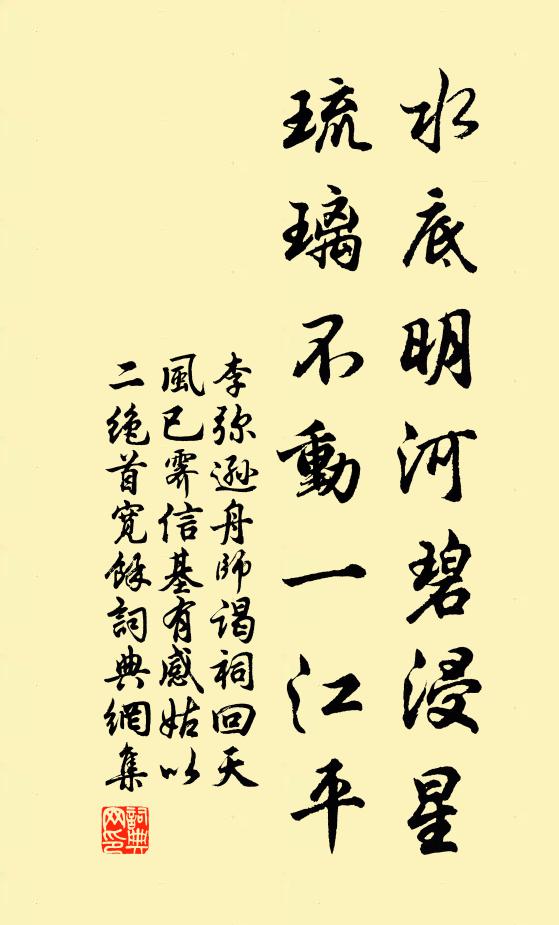 水底明河碧浸星
琉璃不動一江平
李弥遜舟師謁祠回天
風已霽信基有感姑以
二绝首寬餘詞典網集
詞典
网印